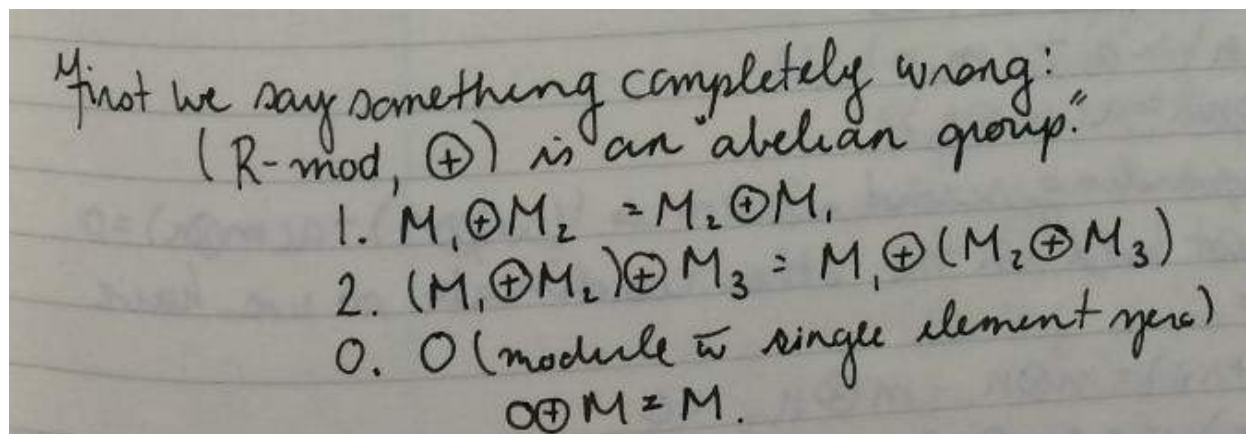 First we say something completely wrong:
(R-mod, ⊕) is an "abelian group."
1. M₁⊕M₂ = M₂⊕M₁
2. (M₁⊕M₂)⊕M₃ = M₁⊕(M₂⊕M₃)
0. O (module w̅ single element zero)
O⊕M = M.